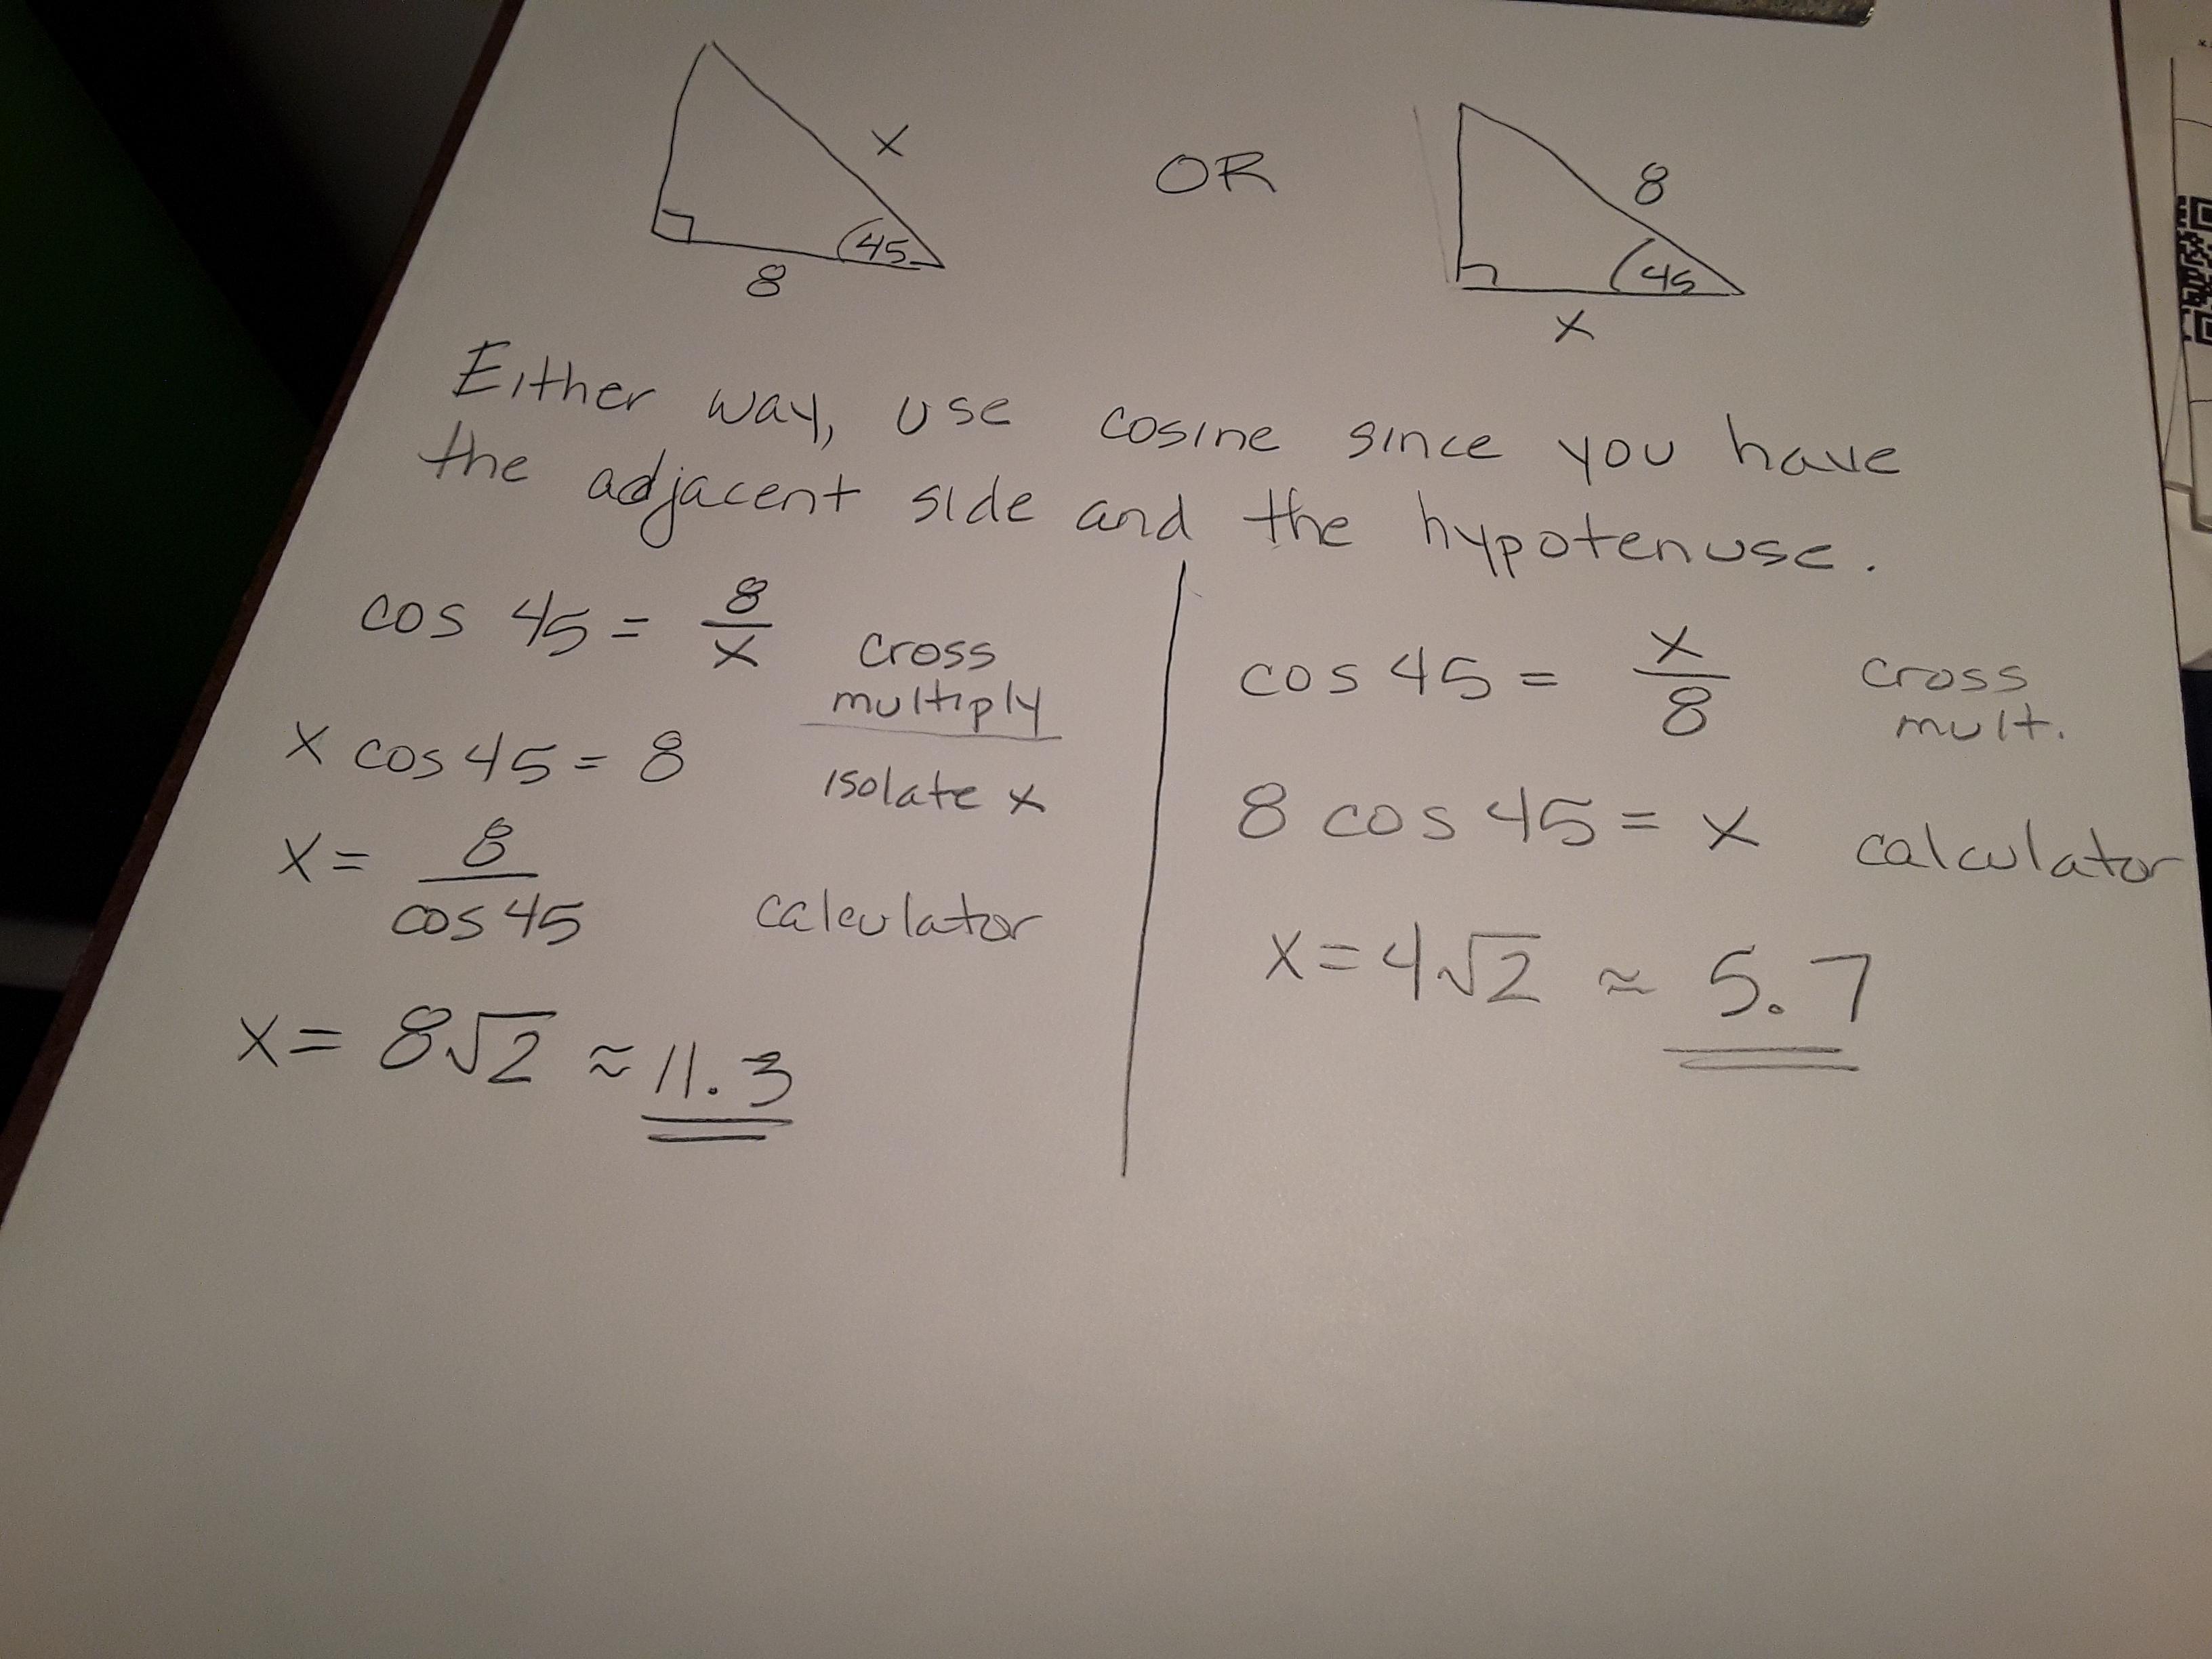 x
8
45
OR
8
x
45
Either way, use cosine since you have
the adjacent side and the hypotenuse.
cos 45 = 8/x cross
multiply
x cos 45 = 8
isolate x
x = 8/cos 45
calculator
x = 8√2 ≈ 11.3
cos 45 = x/8 cross
mult.
8 cos 45 = x calculator
x = 4√2 ≈ 5.7